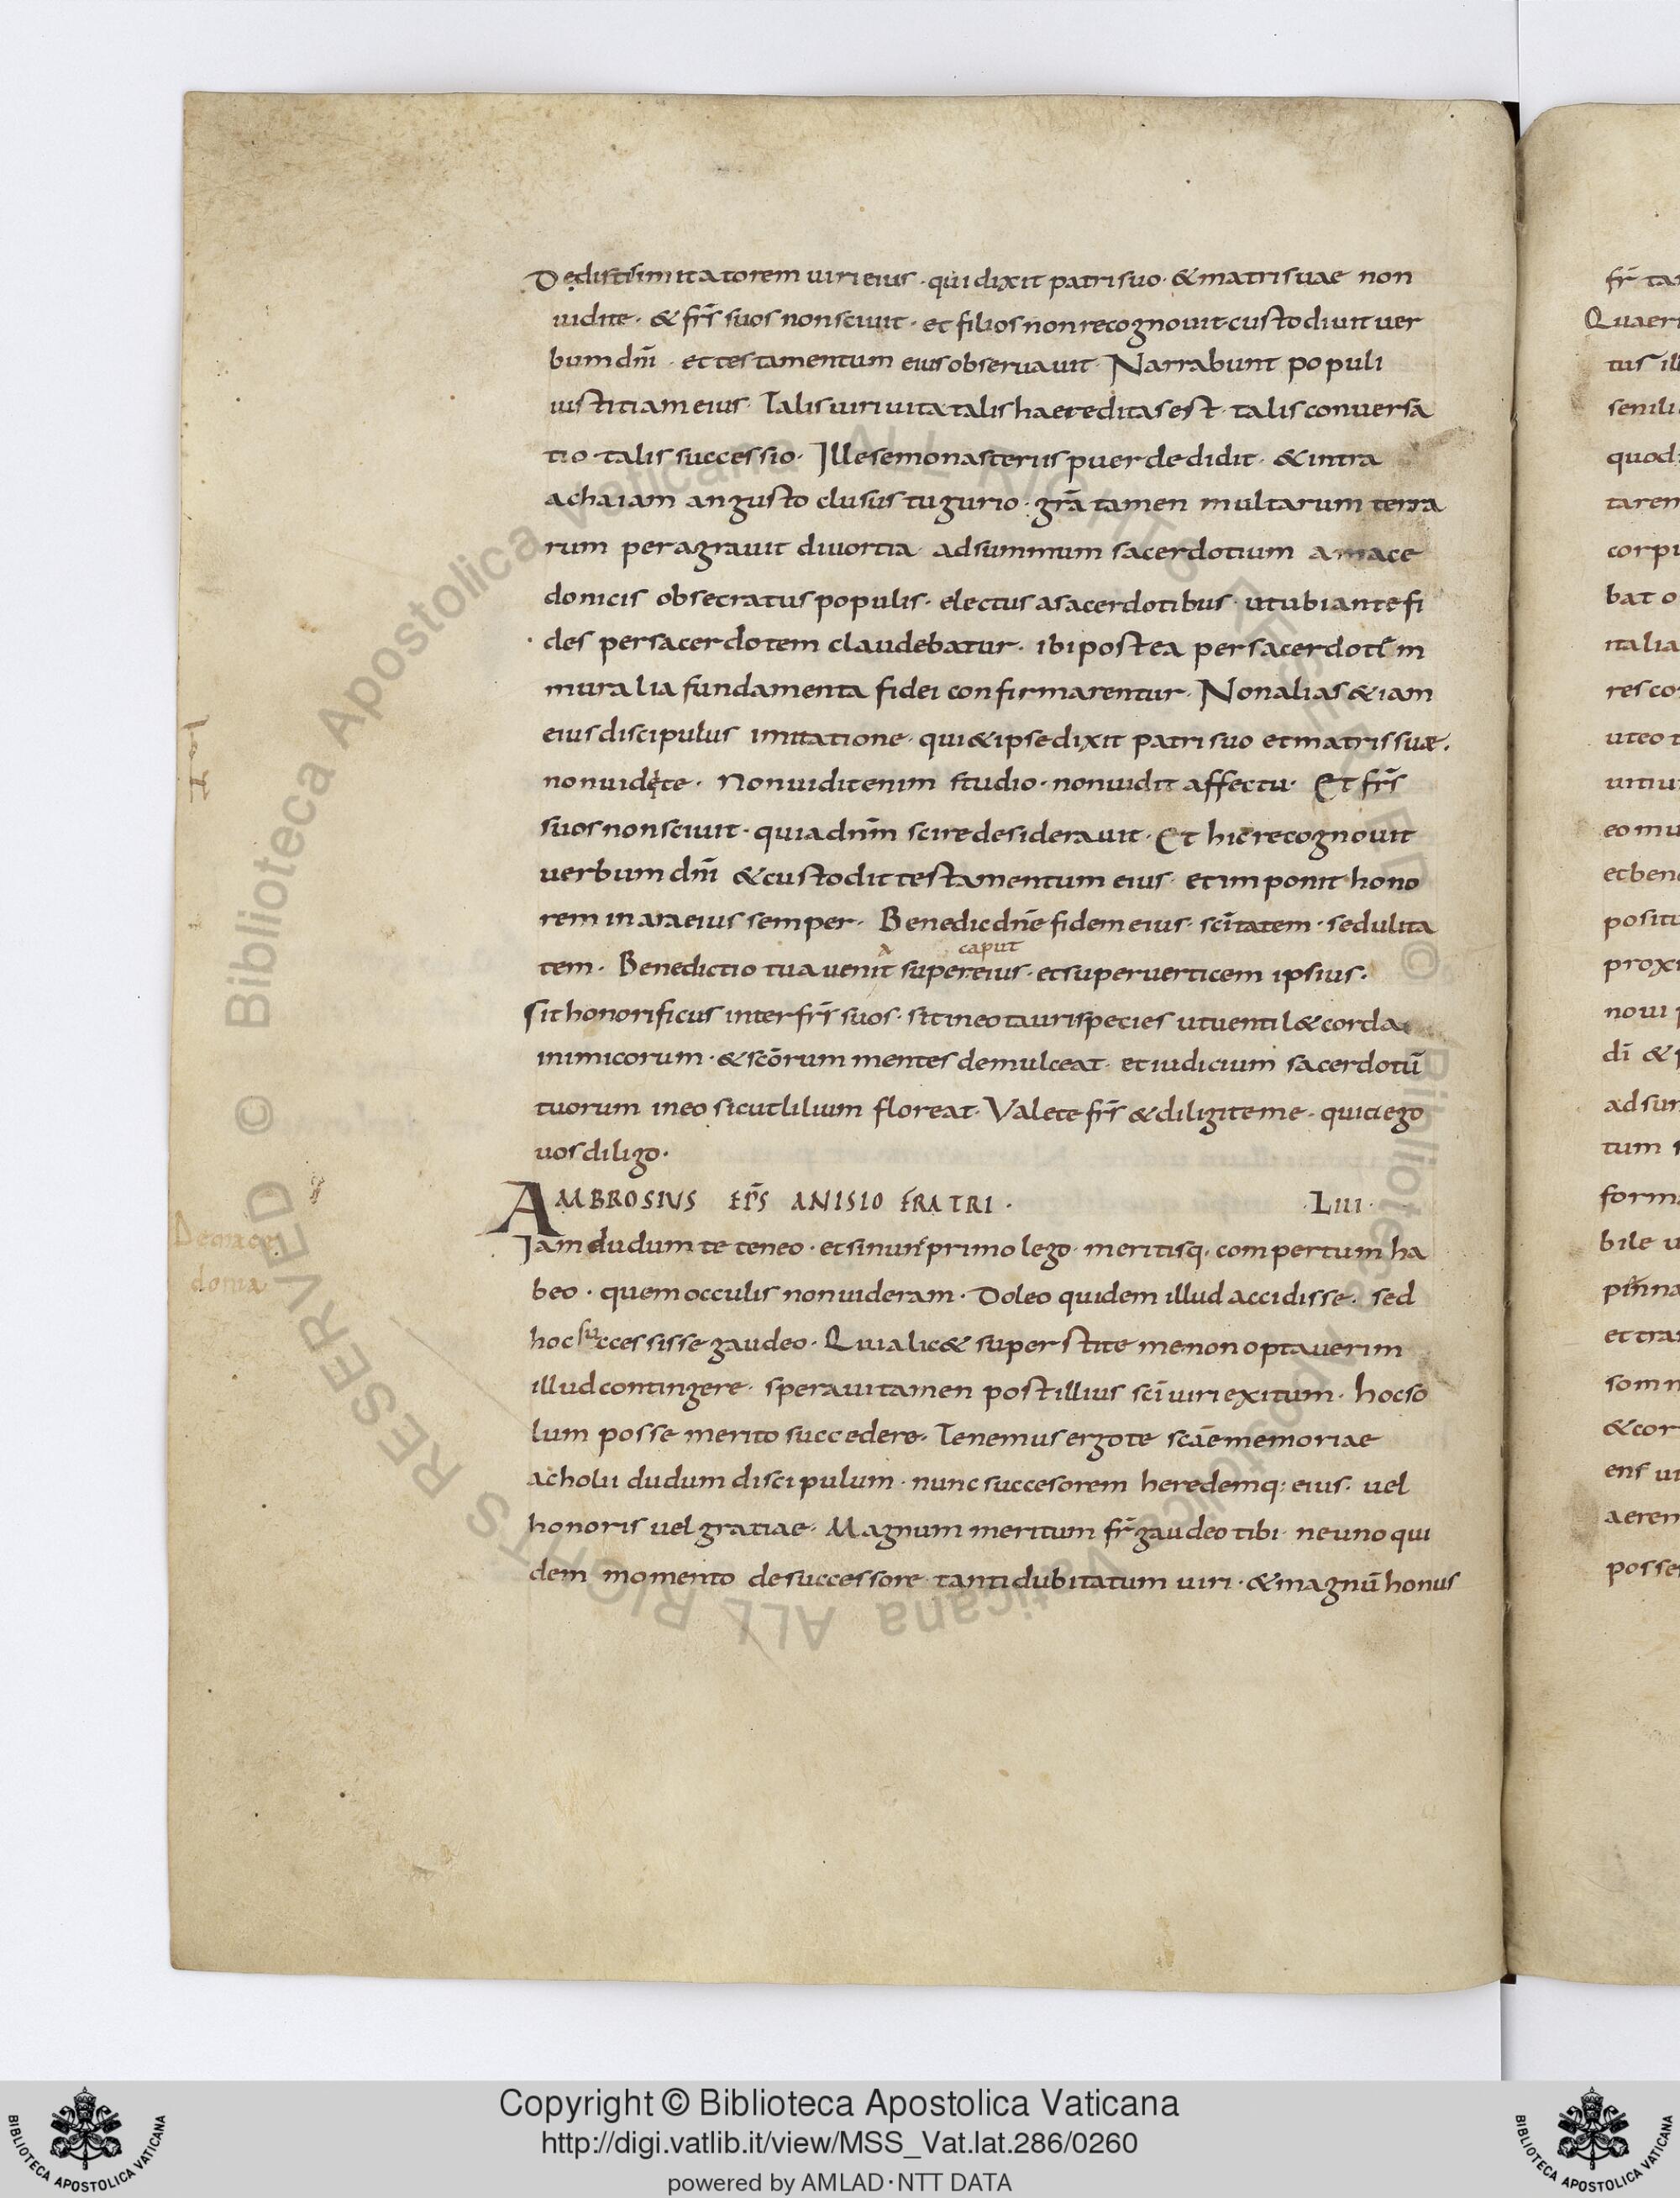 Dedistisimitatorem uiri eius · qui dixit patri suo · & matri suae non
uidite · & frs̄ suos non sciuit · et filios non recognouit custodiuit uer
bum dnī · et testamentum eius obseruauit · Narrabunt populi
iustitiam eius · Talis uiri uita talis haereditas est · talis conuersa
tio talis successio · Ille se monasteriis puer dedidit · & intra
achaiam angusto clusus tugurio · grā tamen multarum terra
rum peragrauit diuortia · ad summum sacerdotium a mace
donicis obsecratus populis · electus a sacerdotibus · ut ubi ante fi
des per sacerdotem claudebatur · ibi postea per sacerdotem
muralia fundamenta fidei confirmarentur · Non alias & iam
eius discipulus imitatione · qui & ipse dixit patri suo et matri suæ ·
non uidete · Non uidit enim studio · non uidit affectu · Et frs̄
suos non sciuit · quia dnm̄ scire desiderauit · Et hic recognouit
uerbum dnī & custodit testamentum eius · et imponit hono
rem in ara eius semper · Benedic dnē fidem eius · scitātem · sedulita
tem · Benedictio tua uenit super eius · et super uerticem ipsius ·
a caput
Sit honorificus inter frs̄ suos · sit in eo tauri species ut uentil& corda
inimicorum · & scōrum mentes demulceat · et iudicium sacerdotū
tuorum in eo sicut lilium floreat · Valete frs̄ & diligite me · quia ego
uos diligo ·
AMBROSIUS EPS̄ ANISIO FRATRI · LIII ·
Iam dudum te teneo · et si nunc primo lego · meritisq · compertum ha
beo · quem occulis non uideram · Doleo quidem illud accidisse · sed
hoc successisse gaudeo · Quia lic& superstite me non optauerim
illud contingere · speraui tamen post illius scī uiri exitum · hoc so
lum posse merito succedere · Tenemus ergo te scāe memoriae
acholii dudum discipulum · nunc succesorem heredemq: eius · uel
honoris uel gratiae · Magnum meritum fr̄ gaudeo tibi · ne uno qui
dem momento de successore tanti dubitatum uiri · & magnū honus
Demace
donia
fr̄
Quaer
tus
senili
quod
corpu
bat
italia
uteo
eo mu
et ben
posit
proxi
noui
dī &
ad su
tum
form
bile
et tra
som
& cor
aeren
posse
© Biblioteca Apostolica Vaticana ALL RIGHTS RESERVED
© Biblioteca Apostolica Vaticana ALL RIGHTS RESERVED
Copyright © Biblioteca Apostolica Vaticana
http://digi.vatlib.it/view/MSS_Vat.lat.286/0260
powered by AMLAD·NTT DATA
BIBLIOTECA APOSTOLICA VATICANA
BIBLIOTECA APOSTOLICA VATICANA